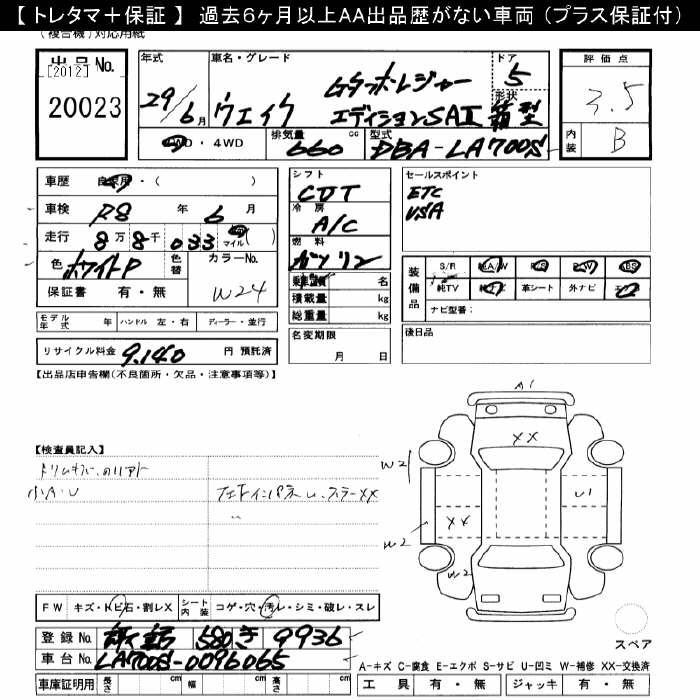 【トレタマ＋保証】過去6ヶ月以上AA出品歴がない車両（プラス保証付）
（複合機）対応用紙
出品No.
[2012]
20023
年式
29/6月
車名・グレード
Gターボレジャー
ウェイク エディションSAⅢ
ドア
5
形状
箱型
評価点
3.5
内装
B
2WD・4WD
排気量 cc
660
型式
DBA-LA700S
車歴 自家用・( )
車検 R8 年 6 月
走行 8万8千033 km マイル( )
色 ホワイトP
色替
カラーNo.
W24
保証書 有・無
モデル年式 年 ハンドル 左・右 ディーラー・並行
リサイクル料金 9,140 円 預託済
シフト
CVT
冷房
A/C
燃料
ガソリン
乗車定員 名
積載量 kg
総重量 kg
名変期限
月 日
セールスポイント
ETC
VSA
装備品
S/R 純A/W P/S P/W ABS
純TV 純ナビ 革シート 外ナビ エアB
ナビ型番：
後日品
【出品店申告欄(不良箇所・欠品・注意事項等)】
【検査員記入】
小A・U
A1
XX
W2
U1
XX
W2
W2
FW キズ・トビ石・割レX シート内装 コゲ・穴・汚レ・シミ・破レ・スレ
登録No. 580 き 9936
車台No. LA700S-0096065
車庫証明用 長さ cm 幅 cm 高さ cm
スペア
A-キズ C-腐食 E-エクボ S-サビ U-凹ミ W-補修 XX-交換済
工具 有・無 ジャッキ 有・無